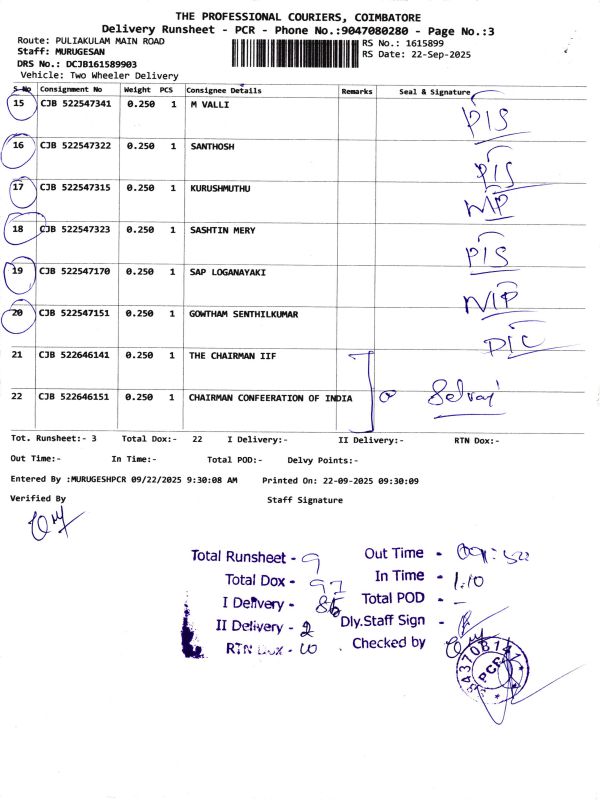 THE PROFESSIONAL COURIERS, COIMBATORE
Delivery Runsheet - PCR - Phone No.:9047080280 - Page No.:3
Route: PULIAKULAM MAIN ROAD RS No.: 1615899
Staff: MURUGESAN RS Date: 22-Sep-2025
DRS No.: DCJB161589903
Vehicle: Two Wheeler Delivery
S No Consignment No Weight PCS Consignee Details Remarks Seal & Signature
15 CJB 522547341 0.250 1 M VALLI PIS
16 CJB 522547322 0.250 1 SANTHOSH PIS
17 CJB 522547315 0.250 1 KURUSHMUTHU NIP
18 CJB 522547323 0.250 1 SASHTIN MERY PIS
19 CJB 522547170 0.250 1 SAP LOGANAYAKI NIP
20 CJB 522547151 0.250 1 GOWTHAM SENTHILKUMAR PIC
21 CJB 522646141 0.250 1 THE CHAIRMAN IIF
22 CJB 522646151 0.250 1 CHAIRMAN CONFEERATION OF INDIA Selvaj
Tot. Runsheet:- 3 Total Dox:- 22 I Delivery:- II Delivery:- RTN Dox:-
Out Time:- In Time:- Total POD:- Delvy Points:-
Entered By :MURUGESHPCR 09/22/2025 9:30:08 AM Printed On: 22-09-2025 09:30:09
Verified By Staff Signature
Total Runsheet - 9 Out Time -
Total Dox - 97 In Time - 1.10
I Delivery - 86 Total POD - -
II Delivery - 2 Dly.Staff Sign -
RTN Dox - Checked by
PCR